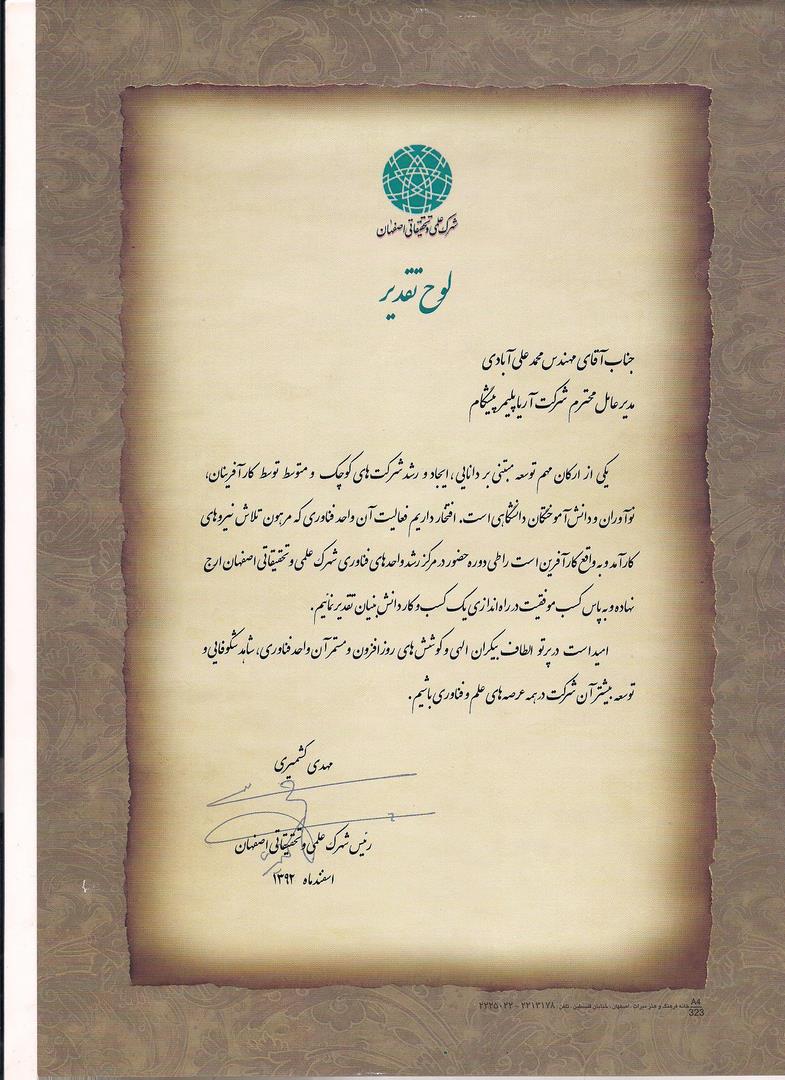 شهرک علمی و تحقیقاتی اصفهان
لوح تقدیر
جناب آقای مهندس محمد علی آبادی
مدیر عامل محترم شرکت آریا پلیمر پیشگام
یکی از ارکان مهم توسعه مبتنی بر دانایی، ایجاد و رشد شرکت های کوچک و متوسط توسط کارآفرینان،
نوآوران و دانش آموختگان دانشگاهی است. افتخار داریم فعالیت آن واحد فناوری که مرهون تلاش نیروهای
کارآمد و به واقع کارآفرین است را طی دوره حضور در مرکز رشد واحدهای فناوری شهرک علمی و تحقیقاتی اصفهان ارج
نهاده و به پاس کسب موفقیت در راه اندازی یک کسب و کار دانش بنیان تقدیر نمائیم.
امید است در پرتو الطاف بیکران الهی و کوشش های روز افزون و مستمر آن واحد فناوری، شاهد شکوفایی و
توسعه بیشتر آن شرکت در همه عرصه های علم و فناوری باشیم.
مهدی کشمیری
رئیس شهرک علمی و تحقیقاتی اصفهان
اسفند ماه ۱۳۹۲
خانه فرهنگ و هنر میراث - اصفهان - خیابان فلسطین - تلفن: ۲۲۱۳۱۷۸ - ۲۲۲۵۰۲۲
A4
323